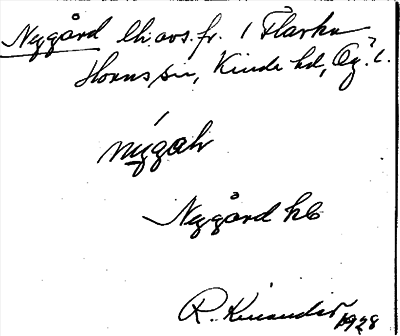 Nygård lh. avs. fr. 1 Flarka
Horns sn, Kinda hd, Ög. l.
nýgah
Nygård hb
R. Kinander 1928